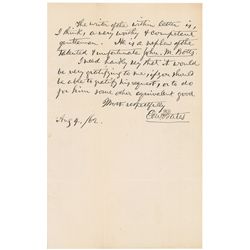 The writer of the within letter is,
I think, a very worthy & competent
gentleman. He is a nephew of the
talented & unfortunate John. M. Botts.
I need hardly say that it would
be very gratifying to me, if you should
be able to gratify his request, or to do
for him some other equivalent good
Most respectfully
Edw. Bates
Aug 9, /62.